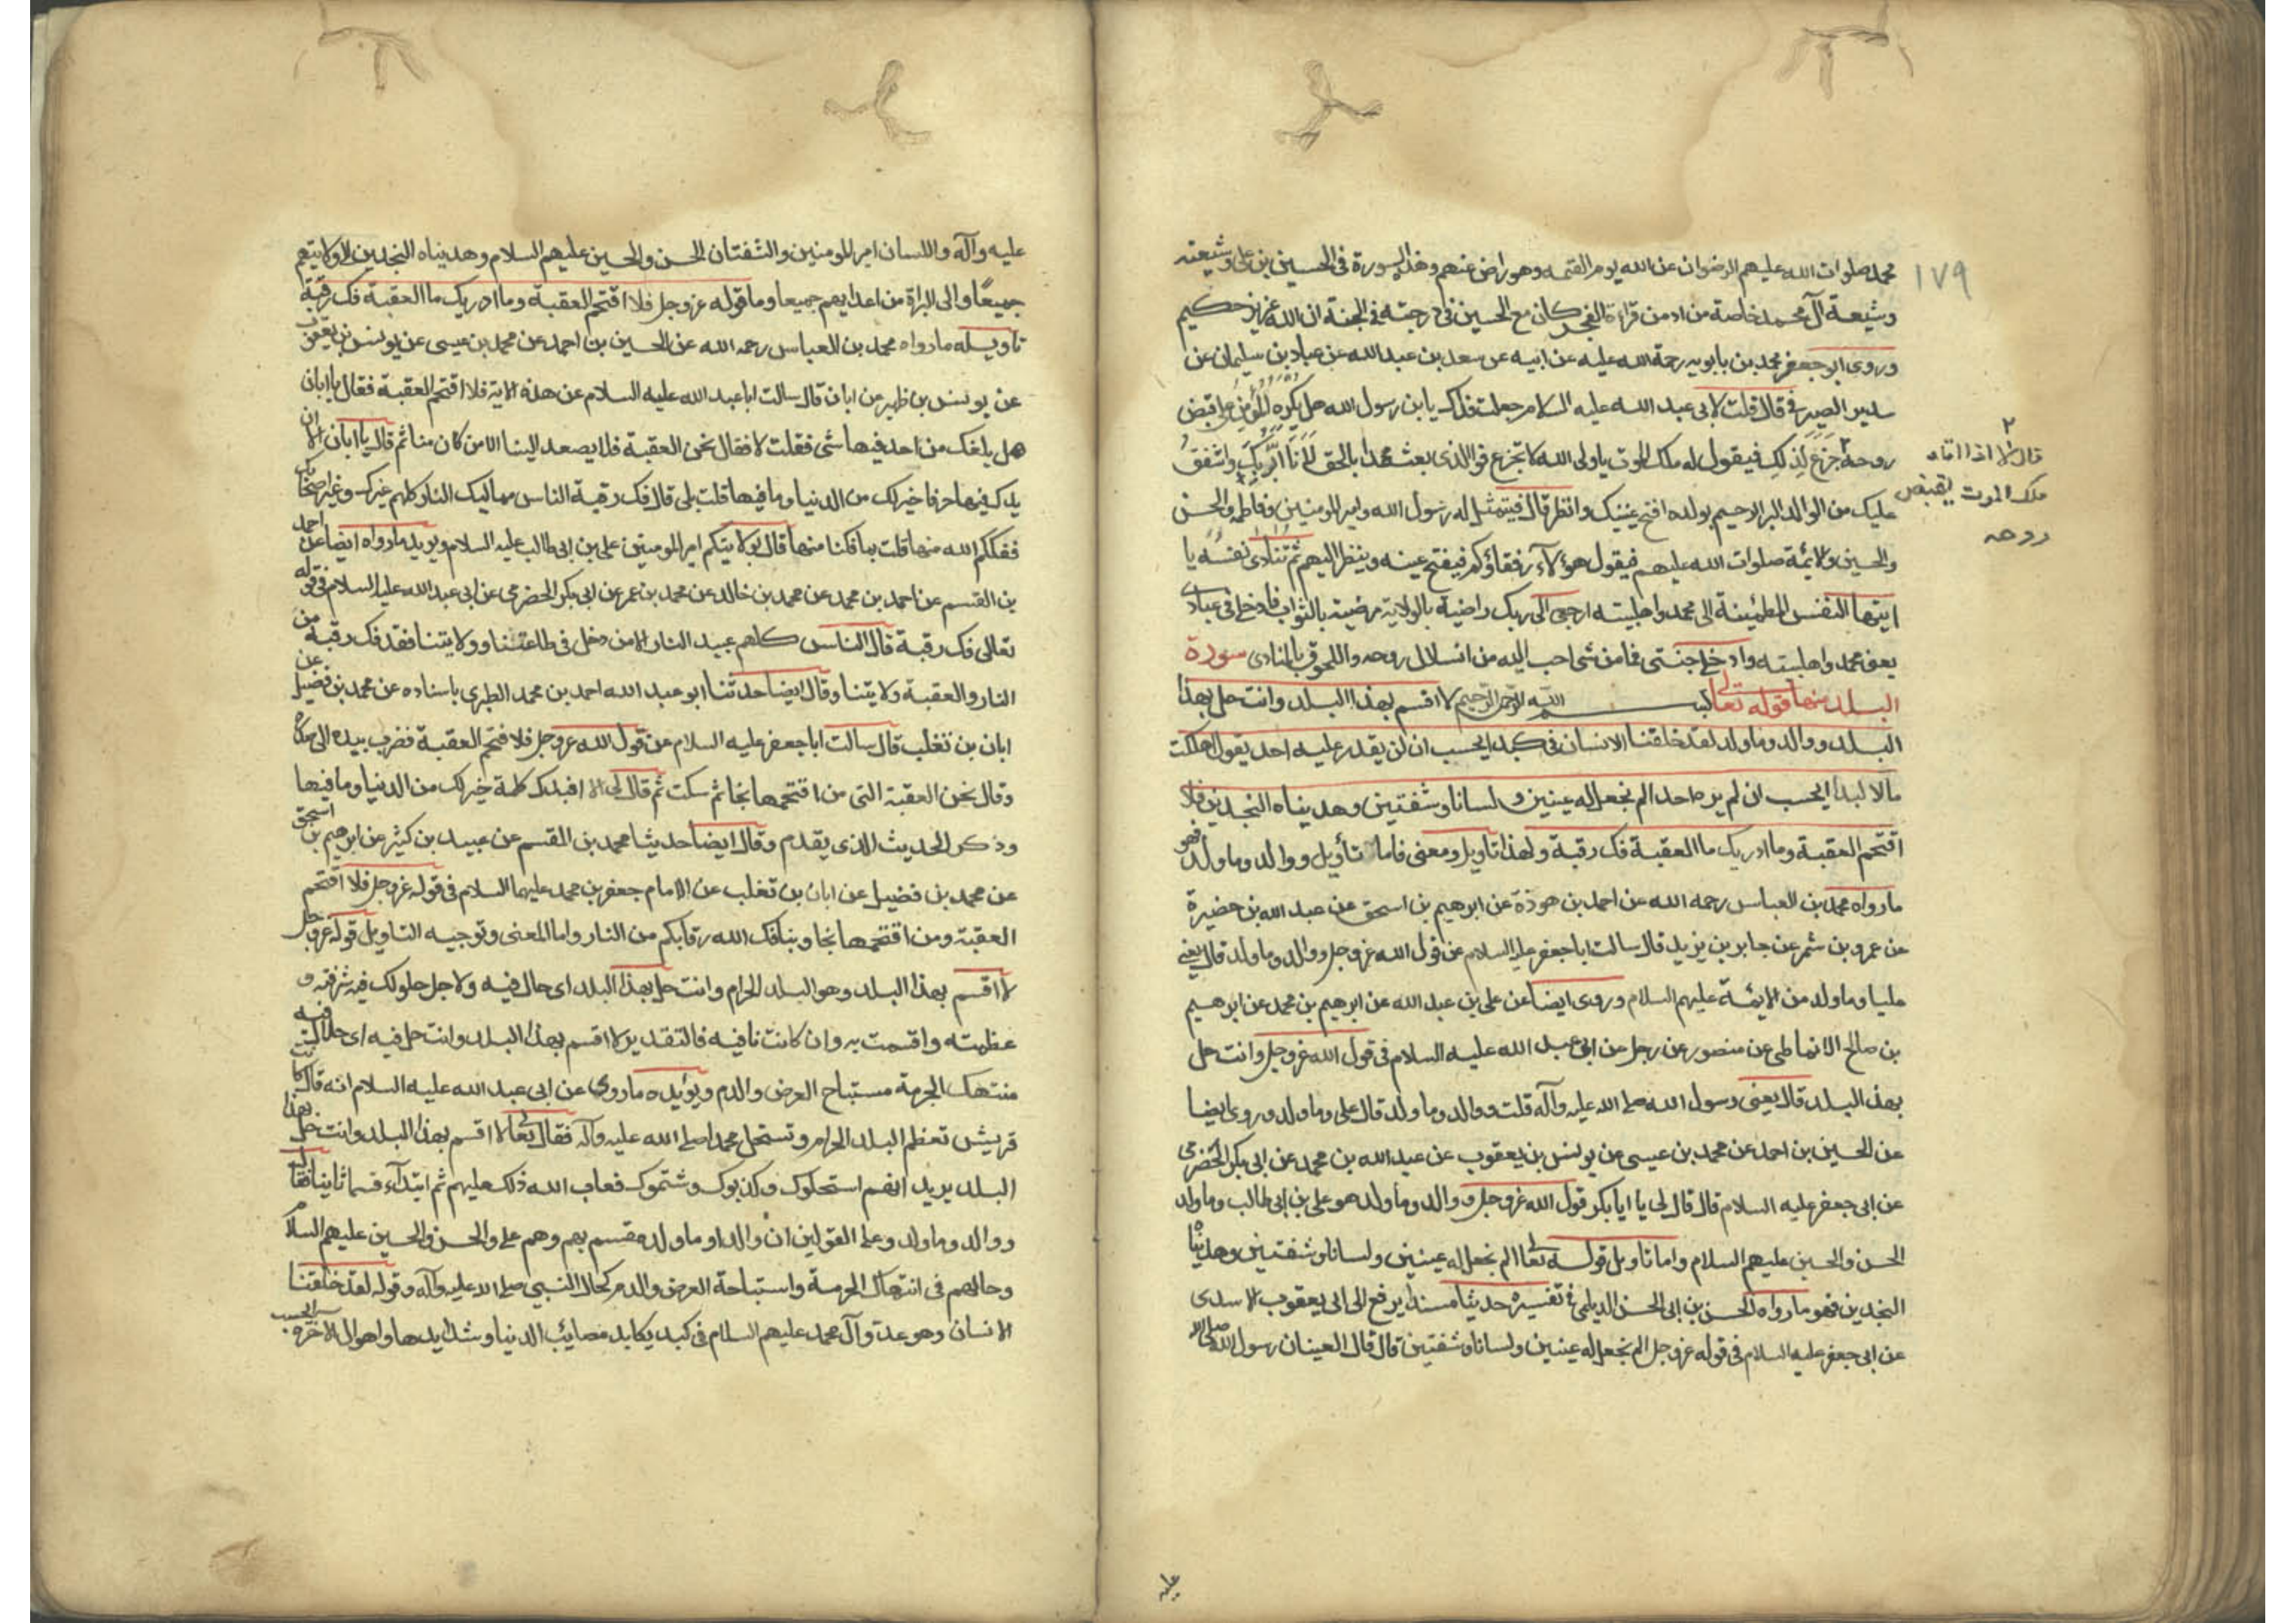 ١٧٩
محمد صلوات الله عليهم الرضوان عن الله يوم القيمة وهو راض عنهم وهذه السورة في الحسين بن علي وشيعته
وشيعة آل محمد خاصة من ادمن قراءة الفجر كان مع الحسين في درجته في الجنة ان الله عزيز حكيم
وروى ابو جعفر محمد بن بابويه رحمة الله عليه عن ابيه عن سعد بن عبد الله عن عباد بن سليمان عن
سدير الصيرفي قال قلت لابي عبد الله عليه السلام جعلت فداك يا بن رسول الله هل يكره المؤمن على قبض
روحه جزع لذلك فيقول له ملك الموت يا ولي الله لا تجزع فوالذي بعث محمدا بالحق لانا ابر بك واشفق
قال لا اذا اتاه
ملك الموت يقبض
روحه
عليك من الوالد البر الرحيم بولده افتح عينيك وانظر قال فيتمثل له رسول الله وامير المومنين وفاطمة والحسن
والحسين والائمة صلوات الله عليهم فيقول هؤلاء رفقاؤكم فيفتح عينه وينظر اليهم ثم تنادى نفسه يا
ايتها النفس المطمئنة الى محمد واهلبيته ارجعي الى ربك راضية بالولاية مرضية بالثواب فادخلي في عبادي
يعنى محمد واهلبيته وادخلي جنتي فما من شي احب اليه من انسلال روحه واللحوق بالمنادى سورة
البلد منها قوله تعالى بسم الله الرحمن الرحيم لا اقسم بهذا البلد وانت حل بهذا
البلد ووالد وما ولد لقد خلقنا الانسان في كبد ايحسب ان لن يقدر عليه احد يقول اهلكت
مالا لبدا ايحسب ان لم يره احد الم نجعل له عينين ولسانا وشفتين وهديناه النجدين فلا
اقتحم العقبة وما ادريك ما العقبة فك رقبة ولهذا تاويل ومعنى فاما تأويل ووالد وما ولد فهو
ما رواه محمد بن العباس رحمه الله عن احمد بن هوذة عن ابرهيم بن اسحق عن عبد الله بن حضيرة
عن عمرو بن شمر عن جابر بن يزيد قال سالت ابا جعفر عليه السلام عن قول الله عز وجل ووالد وما ولد قال يعني
عليا وما ولد من الائمة عليهم السلام وروى ايضا عن علي بن عبد الله عن ابرهيم بن محمد عن ابرهيم
بن صالح الانماطي عن منصور عن رجل عن ابي عبد الله عليه السلام في قول الله عز وجل وانت حل
بهذا البلد قال يعني رسول الله صلى الله عليه وآله قلت ووالد وما ولد قال علي وما ولد وروى ايضا
عن الحسين بن احمد عن محمد بن عيسى عن يونس بن يعقوب عن عبد الله بن محمد عن ابي بكر الحضرمي
عن ابي جعفر عليه السلام قال قال لي يا ابا بكر قول الله عز وجل ووالد وما ولد هو علي بن ابي طالب وما ولد
الحسن والحسين عليهم السلام واما تاويل قوله تعالى الم نجعل له عينين ولسانا وشفتين وهديناه
النجدين فهو ما رواه الحسن بن ابي الحسن الديلمي في تفسيره حديثا مسندا يرفع الى ابي يعقوب الاسدى
عن ابي جعفر عليه السلام في قوله عز وجل الم نجعل له عينين ولسانا وشفتين قال قال العينان رسول الله صلى الله
عليه
عليه وآله واللسان امير المومنين والشفتان الحسن والحسين عليهم السلام وهديناه النجدين الى ولايتهم
جميعا والى البراة من اعدايهم جميعا وما قوله عز وجل فلا اقتحم العقبة وما ادريك ما العقبة فك رقبة
تاويله ما رواه محمد بن العباس رحمه الله عن الحسين بن احمد عن محمد بن عيسى عن يونس بن يعقوب
عن يونس بن ظهير عن ابان قال سالت ابا عبد الله عليه السلام عن هذه الاية فلا اقتحم العقبة فقال يا ابان
هل بلغك من احد فيها شى فقلت لا فقال نحن العقبة فلا يصعد الينا الا من كان منا ثم قال يا ابان الا ازيدك
فيها حرفا خير لك من الدنيا وما فيها قلت بلى قال فك رقبة الناس مماليك النار كلهم غيرك وغير اصحابك
ففككم الله منها قلت بما فكنا منها قال بولايتكم امير المومنين علي بن ابي طالب عليه السلام ويويده ما رواه ايضا عن احمد
بن القسم عن احمد بن محمد عن محمد بن خالد عن محمد بن عمر عن ابي بكر الحضرمي عن ابي عبد الله عليه السلام في قوله
تعالى فك رقبة قال الناس كلهم عبيد النار الا من دخل في طاعتنا وولايتنا فقد فك رقبة من
النار والعقبة ولايتنا وقال ايضا حدثنا ابو عبد الله احمد بن محمد الطبرى باسناده عن محمد بن فضيل عن
ابان بن تغلب قال سالت ابا جعفر عليه السلام عن قول الله عز وجل فلا اقتحم العقبة فضرب بيده الى صدره
وقال نحن العقبة التي من اقتحمها نجا ثم سكت ثم قال لي الا افيدك كلمة خير لك من الدنيا وما فيها
وذكر الحديث الذى يقدم وقال ايضا حديثا محمد بن القسم عن عبيد بن كثير عن ابرهيم بن اسحق
عن محمد بن فضيل عن ابان بن تغلب عن الامام جعفر بن محمد عليهما السلام في قوله عز وجل فلا اقتحم
العقبة ومن اقتحمها نجا وبنا فك الله رقابكم من النار واما المعنى وتوجيه التاويل قوله عز وجل
لا اقسم بهذا البلد وهو البلد الحرام وانت حل بهذا البلد اى حال فيه ولاجل حلولك فيه شرفته و
عظمته واقسمت به وان كانت نافيه فالتقدير لا اقسم بهذا البلد وانت حل فيه اى حلال فيه
منتهك الحرمة مستباح العرض والدم ويؤيده ما روى عن ابي عبد الله عليه السلام انه قال كانت
قريش تعظم البلد الحرام وتستحل محمدا صلى الله عليه وآله فقال تعالى لا اقسم بهذا البلد وانت حل بهذا
البلد يريد انهم استحلوك وكذبوك وشتموك فعاب الله ذلك عليهم ثم ابتدآء قسما ثانيا فقال
ووالد وما ولد وعلى القولين ان والدا وما ولد مقسم بهم وهم علي والحسن والحسين عليهم السلام
وحالهم في انتهاك الحرمة واستباحة العرض والدم كحال النبي صلى الله عليه وآله وقوله لقد خلقنا
الانسان وهو عدو آل محمد عليهم السلام في كبد يكابد مصايب الدنيا وشدايدها واهوال الاخره ايحسب